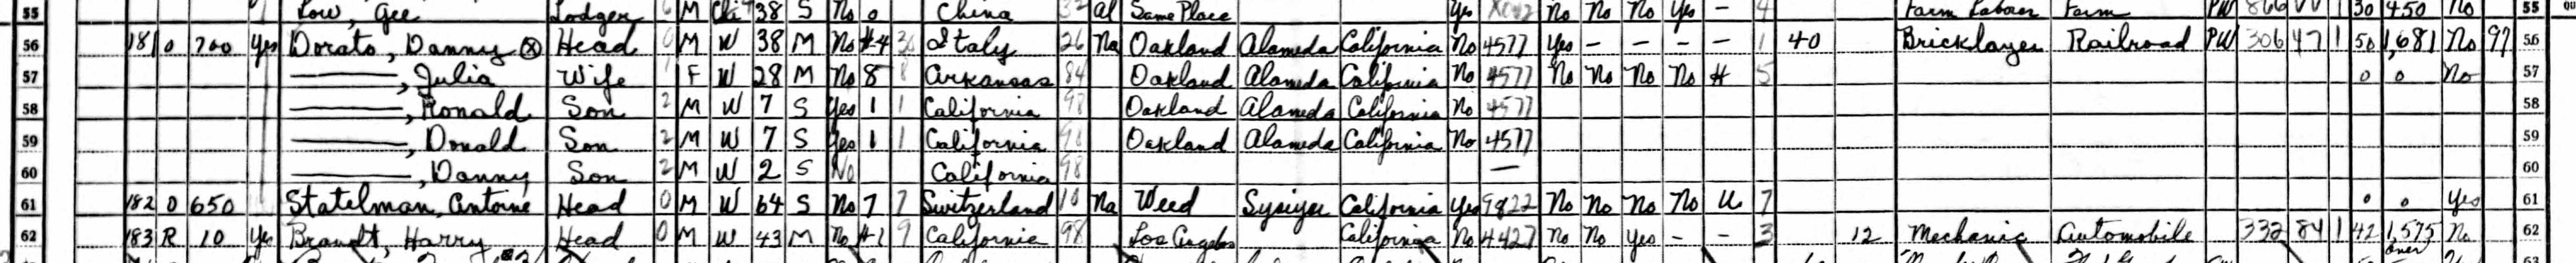 55 Low, Gee Lodger 6 M Chi 38 S No 0 China Al Same Place Yes No No No Yes - 4 Farm Laborer Farm PW 866 VV 1 30 450 No 55
56 181 O 700 Yes Dorato, Danny ⊗ Head 0 M W 38 M No H4 30 Italy 26 Na Oakland Alameda California No 4577 Yes - - - - 1 40 Bricklayer Railroad PW 306 47 1 50 1,681 No 97 56
57 ———, Julia Wife 1 F W 28 M No 8 8 Arkansas 84 Oakland Alameda California No 4577 No No No No H 5 0 0 No 57
58 ———, Ronald Son 2 M W 7 S Yes 1 1 California 98 Oakland Alameda California No 4577 58
59 ———, Donald Son 2 M W 7 S Yes 1 1 California 98 Oakland Alameda California No 4577 59
60 ———, Danny Son 2 M W 2 S No California 98 — 60
61 182 O 650 Statelman, Antoine Head 0 M W 64 S No 7 7 Switzerland 10 Na Weed Sysiyou California Yes 9822 No No No No U 7 0 0 Yes 61
62 183 R 10 Yes Brandt, Harry Head 0 M W 43 M No H1 9 California 98 Los Angeles California No 4427 No No Yes - - 3 12 Mechanic Automobile 332 84 1 42 1,575 No 62
over
63